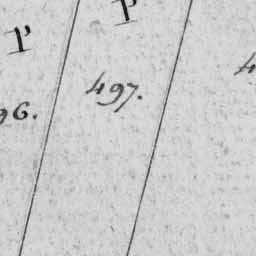 P P
96. 497. 4